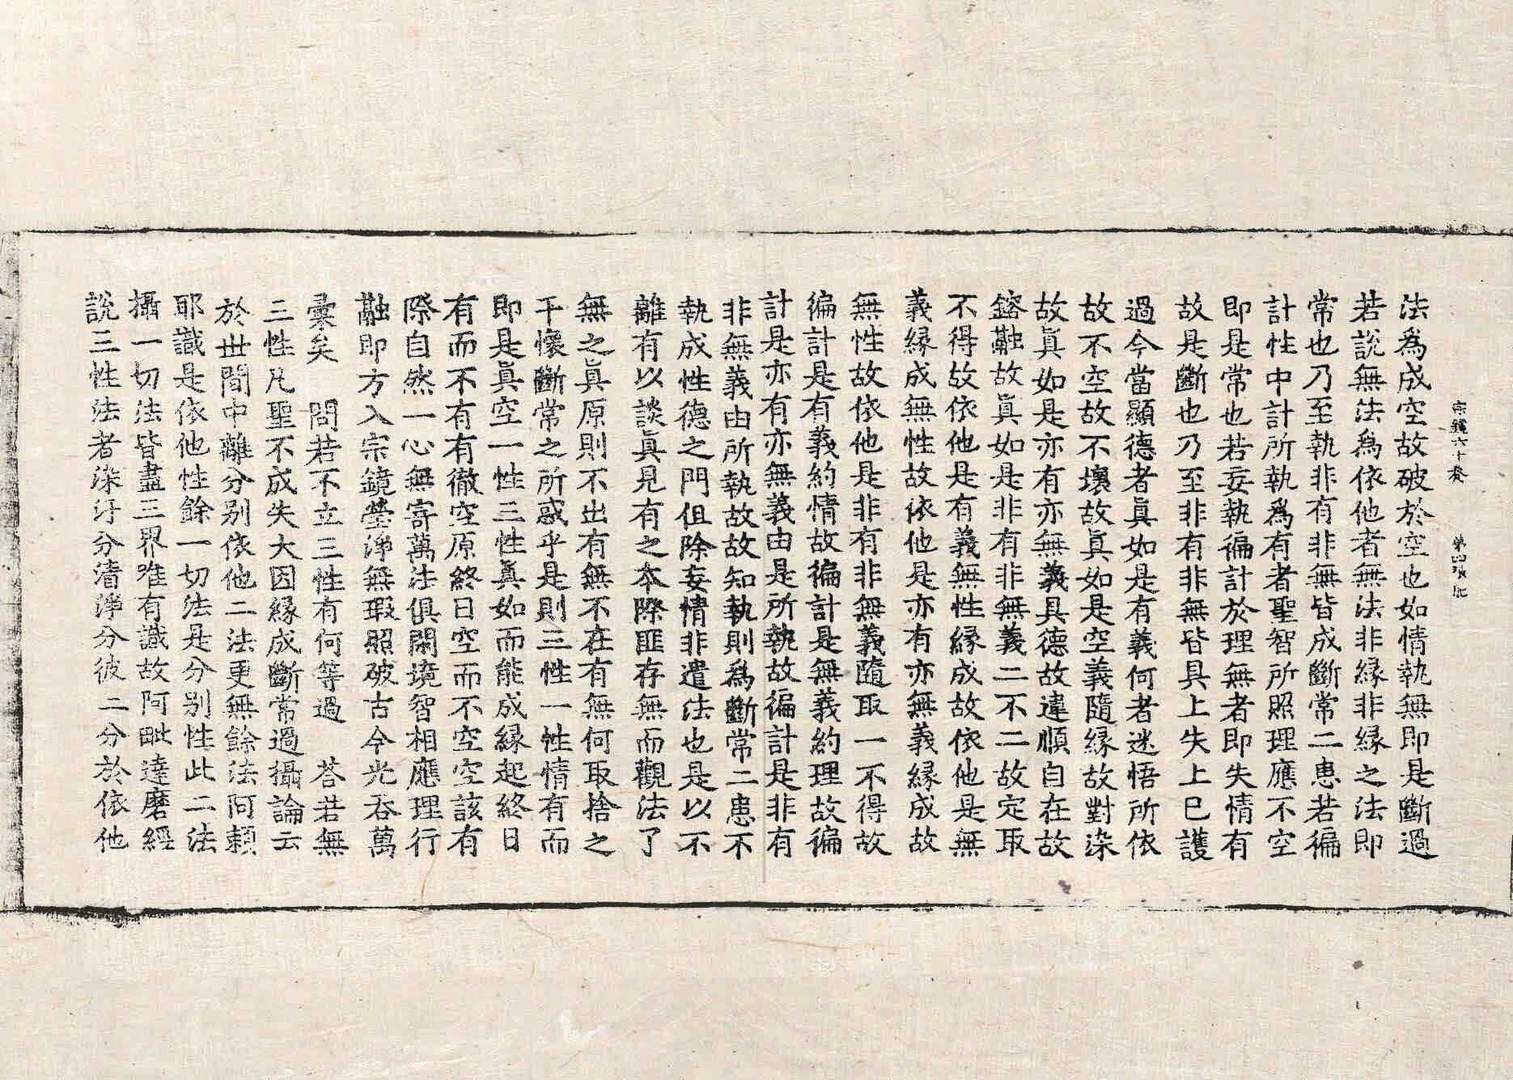 宗鏡六十卷 第四張 肥
法為成空故破於空也如情執無即是斷過
若說無法為依他者無法非縁非縁之法即
常也乃至執非有非無皆成斷常二患若徧
計性中計所執為有者聖智所照理應不空
即是常也若妄執徧計於理無者即失情有
故是斷也乃至非有非無皆具上失上已護
過今當顯德者眞如是有義何者迷悟所依
故不空故不壞故眞如是空義隨縁故對染
故眞如是亦有亦無義具德故違順自在故
鎔融故眞如是非有非無義二不二故定取
不得故依他是有義無性縁成故依他是無
義縁成無性故依他是亦有亦無義縁成故
無性故依他是非有非無義隨取一不得故
徧計是有義約情故徧計是無義約理故徧
計是亦有亦無義由是所執故徧計是非有
非無義由所執故故知執則為斷常二患不
執成性德之門但除妄情非遣法也是以不
離有以談眞見有之本際匪存無而觀法了
無之眞原則不出有無不在有無何取捨之
干懷斷常之所惑乎是則三性一性情有而
即是眞空一性三性眞如而能成縁起終日
有而不有有徹空原終日空而不空空該有
際自然一心無寄萬法俱閑境智相應理行
融即方入宗鏡瑩淨無瑕照破古今光吞萬
彙矣　問若不立三性有何等過　荅若無
三性凡聖不成失大因縁成斷常過攝論云
於世間中離分別依他二法更無餘法阿賴
耶識是依他性餘一切法是分別性此二法
攝一切法皆盡三界唯有識故阿毗達磨經
說三性法者染汙分清淨分彼二分於依他